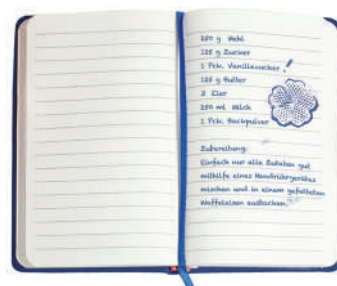 250 g Mehl
125 g Zucker
1 Pck. Vanillezucker!
125 g Butter
3 Eier
250 ml Milch
1 Pck. Backpulver
Zubereitung:
Einfach nur alle Zutaten gut
mithilfe eines Handrührgerätes
mischen und in einem gefetteten
Waffeleisen ausbacken.